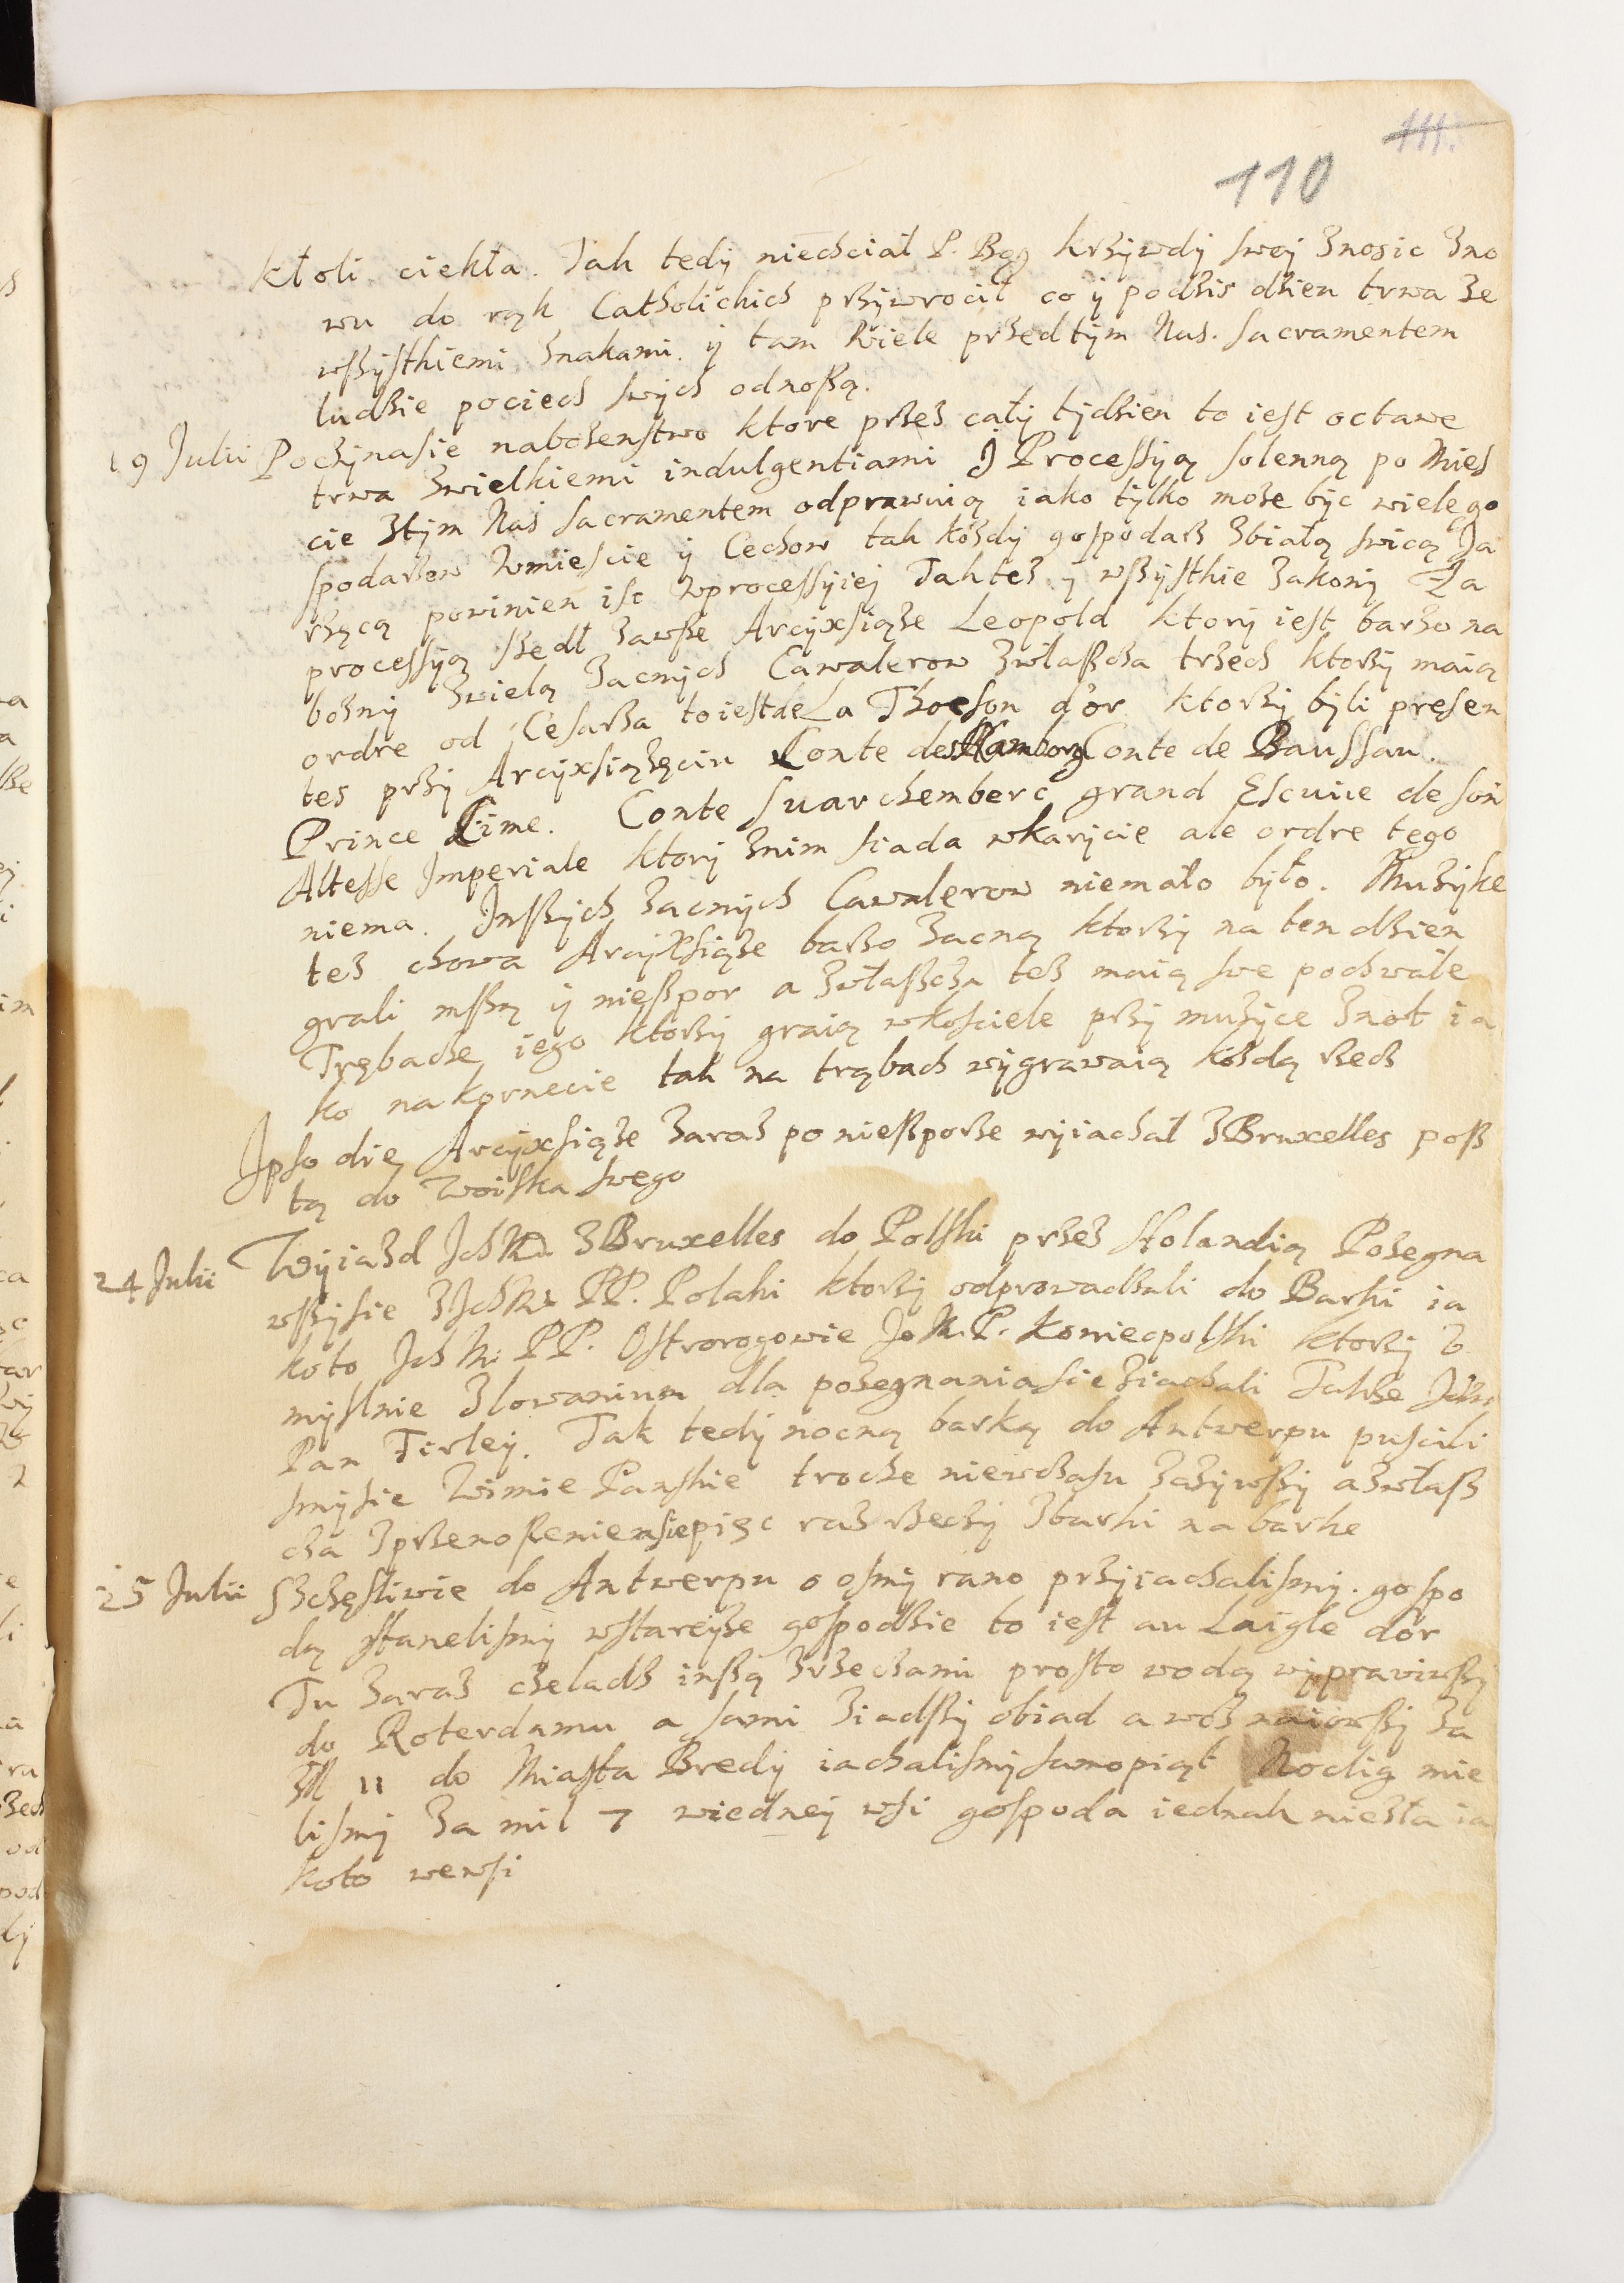 111.
110
kłoli ciekła. Tak tedy niechciał P. Bog krzywdy swej znosic zno
wu do rąk Catholickich przywrocił co y podzis dzien trwa ze
wszystkiemi znakami. y tam Wiele przed tym Nas. sacramentem
ludzie pociech swych odnoszą.
19 Julii Poczyna sie nabozenstwo ktore przez cały tydzien to iest octawe
trwa zwielkiemi indulgentiami J Processyą solenną po Mies
cie stym Nas sacramentem odprawuią iako tylko moze byc wiele go
spodarzow Wmiescie y Cechow tak kozdy gospodarz zbiałą swicą Ja
rzącą powinien isc wprocessyiej Takze y wszystkie zakony Za
processyą szedł zawsze Arcyxsiąze Leopold ktory iest barzo na
bozny zwielą zacnych Cawalerow zwłaszcza trzech ktorzy maią
ordre od Cesarza to iest de La Thoeson d'or ktorzy byli presen
tes przy Arcyxsiązęciu Conte de Conte de Baussau.
Prince Cime. Conte suarchemberc grand Escuiie de son
Altesse Imperiale ktory znim siada wkarycie ale ordre tego
niema. Inszych zacnych Cawalerow niemało było. Muzyke
tez chowa Arcyxsiąze barzo zacną ktorzy na ten dzien
grali mszą y nieszpor a zwłaszcza tez maią swe pochwałe
Trębacze iego ktorzy graią wkosciele przy muzyce znot ia
ko na kornecie tak na trąbach wygrawaią kozdą rzech
Ipso die Arcyxsiąze zaraz po nieszporze wyiachał zBruxelles posz
tą do Woiska swego
24 Julii Wyiazd Jch M zBruxelles do Polski przez Holandią Pozegna
wszy sie zJchM PP. Polaki ktorzy odprowadzali do Barki ia
koto Jch M. PP. Ostrorogowie Jo M. P. Koniecpolski ktorzy v
myslnie zLowanium dla pozegnania sie ziachali Takze Jchm
Pan Firley. Tak tedy nocną barką do Antwerpu puscili
smy sie Wimie Panskie troche niewczasu zazywszy azwłasz
cza zprzenoszeniem sie pięc raz rzeczy zbarki na barke
25 Julii Szczęsliwie do Antwerpu o osmy rano przyiachalismy. gospo
dą stanelismy wstareyze gospodzie to iest au Laigle dor
Tu zaraz czeladz inszą zrzechami prosto wodą wyprawiwszy
do Roterdamu a sami ziadszy obiad a woz naiąwszy za
11 do Miasta Bredy iachalismy samopiąt Noclig mie
lismy za mil 7 wiedney wsi gospoda iednak niezła ia
koto wewsi